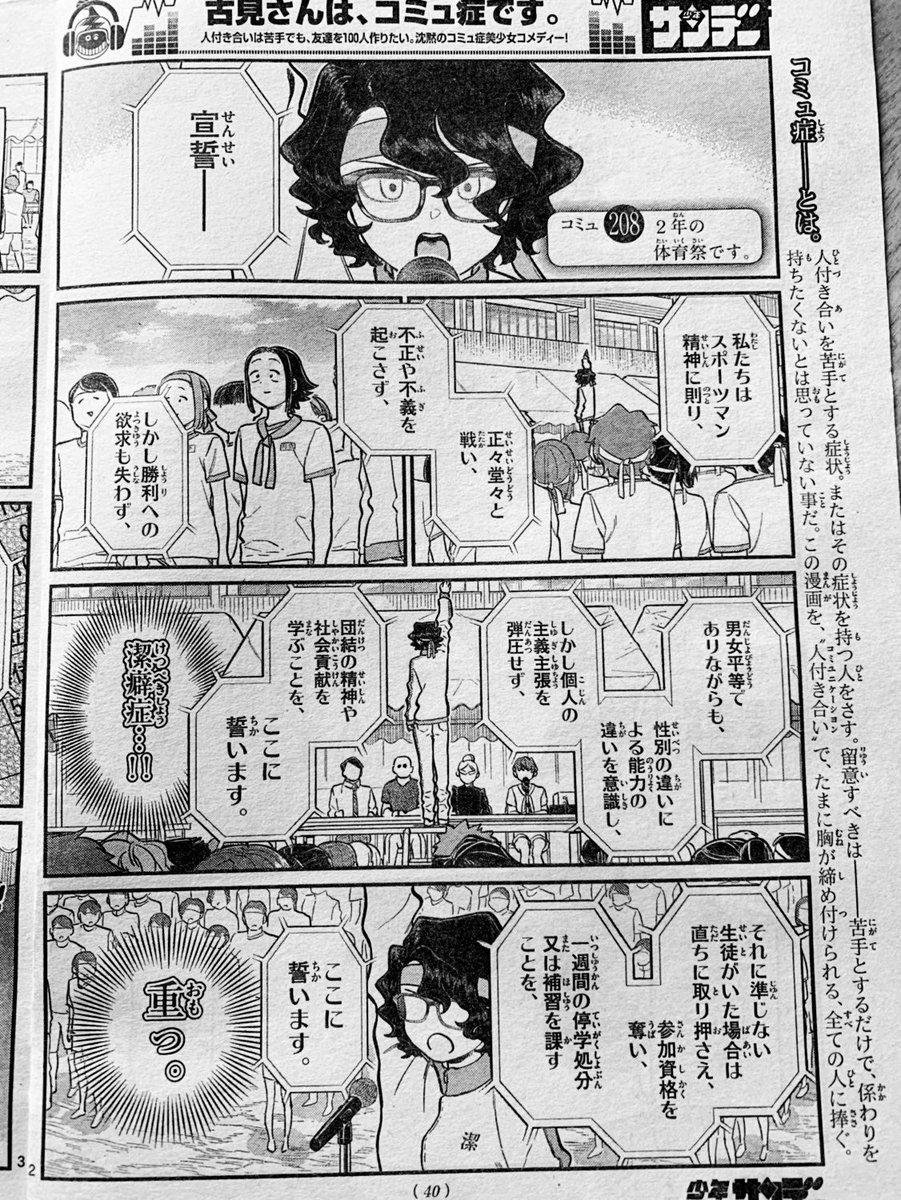 古見さんは、コミュ症です。
人付き合いは苦手でも、友達を100人作りたい。沈黙のコミュ症美少女コメディー!
少年サンデー
コミュ症――とは。
人付き合いを苦手とする症状。またはその症状を持つ人をさす。留意すべきは――苦手とするだけで、係わりを
持ちたくないとは思っていない事だ。この漫画を、〝人付き合い〟で、たまに胸が締め付けられる、全ての人に捧ぐ。
コミュ208
2年の
体育祭です。
宣誓――
私たちは
スポーツマン
精神に則り、
正々堂々と
戦い、
不正や不義を
起こさず、
しかし勝利への
欲求も失わず、
男女平等で
ありながらも、
性別の違いに
よる能力の
違いを意識し、
しかし個人の
主義主張を
弾圧せず、
団結の精神や
社会貢献を
学ぶことを、
ここに
誓います。
潔癖症…!!
それに準じない
生徒がいた場合は
直ちに取り押さえ、
参加資格を
奪い、
一週間の停学処分
又は補習を課す
ことを、
ここに
誓います。
潔
重っ。
32
(40)
少年サンデー